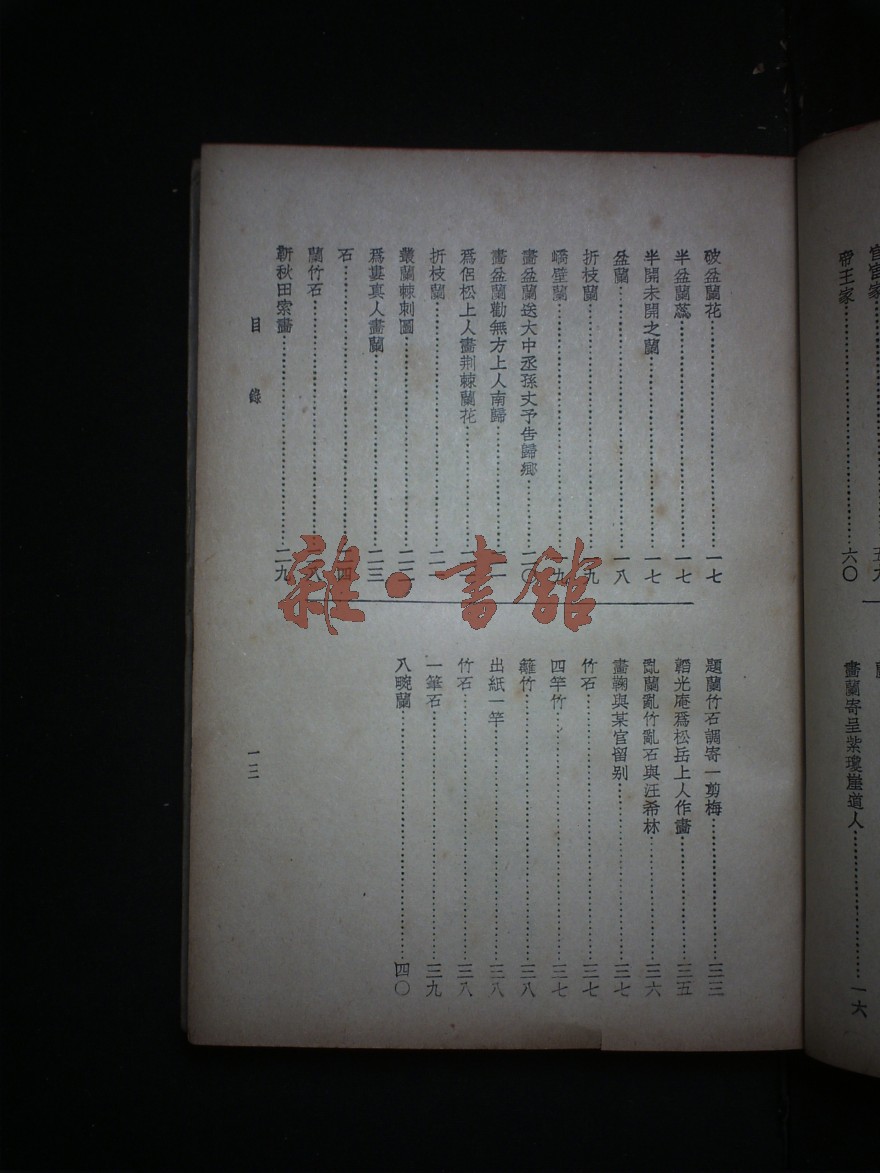 宦家
五九
帝王家
六〇
畫蘭寄呈紫瓊崖道人
一六
破盆蘭花
一七
半盆蘭蕊
一七
半開未開之蘭
一七
盆蘭
一八
折枝蘭
九
嶠壁蘭
一九
畫盆蘭送大中丞孫丈予告歸鄉
二〇
畫盆蘭勸無方上人南歸
為侶松上人畫荆棘蘭花
折枝蘭
叢蘭棘刺圖
為婁真人畫蘭
二三
石
四
蘭竹石
八
靳秋田索畫
二九
題蘭竹石調寄一剪梅
三三
韜光庵為松岳上人作畫
三五
亂蘭亂竹亂石與汪希林
三六
畫鞠與某官留别
三七
竹石
三七
四竿竹
三七
籬竹
三八
出紙一竿
三八
竹石
三八
一筆石
三九
八畹蘭
四〇
目錄
一三
雜·書館